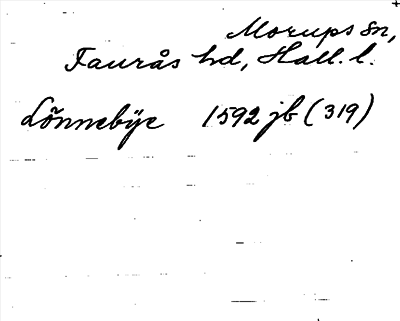 Morups sn,
Faurås hd, Hall. l.
Lönnebÿe 1592 jb (319)